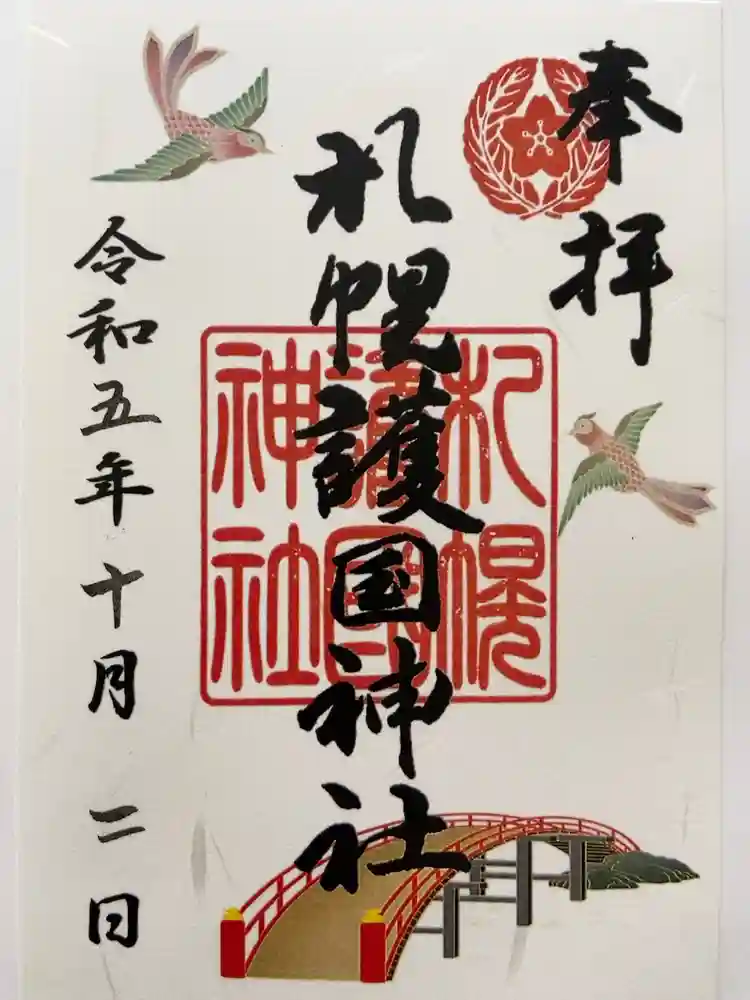 奉拝
札幌護国神社
札幌
護國
神社
令和五年十月二日